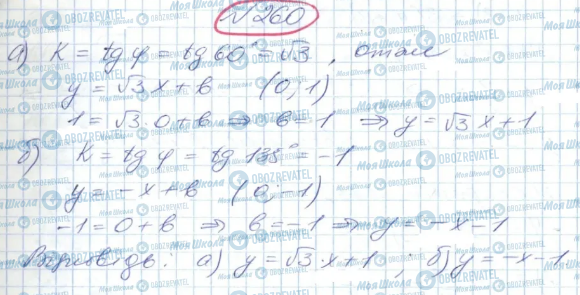 №260
а) K = tg φ = tg 60° = √3, отже
y = √3 x + b (0; 1)
1 = √3 · 0 + b ⇒ b = 1 ⇒ y = √3 x + 1
б) K = tg φ = tg 135° = -1
y = -x + b (0; -1)
-1 = 0 + b ⇒ b = -1 ⇒ y = -x - 1
Відповідь: а) y = √3 x + 1; б) y = -x - 1
Моя Школа OBOZREVATEL